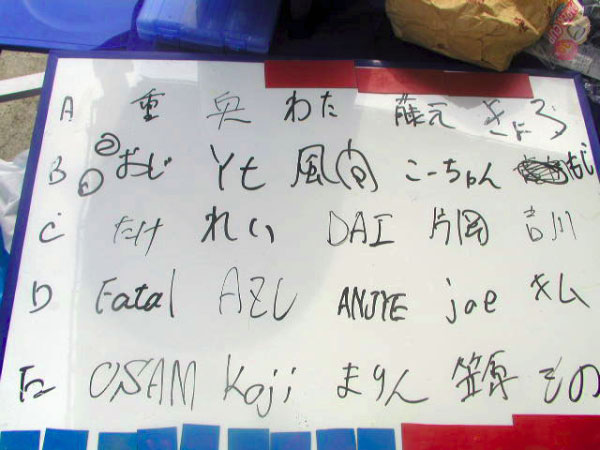 A 重 奥 わた 藤元 きよろ
B ①②おじ Yt 風向 こーちゃん もじ
C たけ れい DAI 片岡 吉川
D Eatal AZU ANJYE jae キム
E OSAM Koji まりん 笠原 その